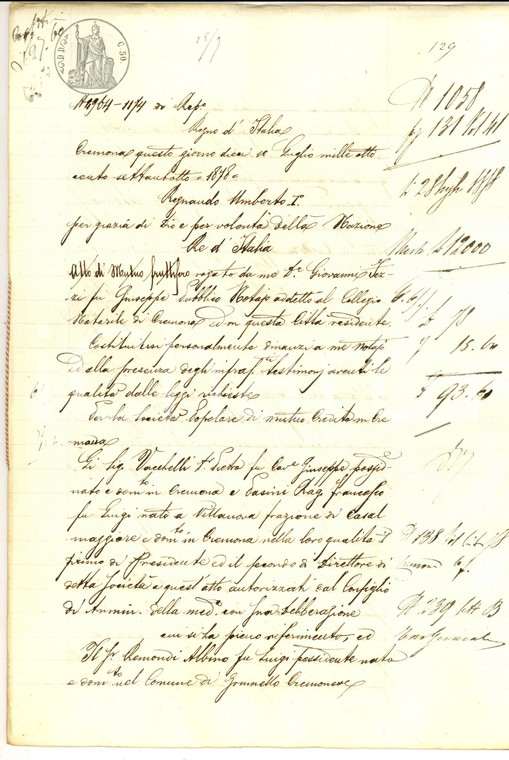 129
N 2964-1174 di Rep.o
Regno d'Italia
Cremona questo giorno dieci 10 Luglio mille otto
cento settantotto = 1878 =
Regnando Umberto I.o
per grazia di Dio e per volontà della Nazione
Re d'Italia
Atto di Mutuo fruttifero rogato da me Dr. Giovanni
fu Giuseppe Pubblico Notajo addetto al Collegio
Notarile di Cremona ed in questa Città residente.
Costituitisi personalmente dinanzi a me Notajo
ed alla presenza degli infra testimonj aventi le
qualità dalle leggi richieste
Per la Società Popolare di mutuo Credito in Cre
mona
Li Sig. Vacchelli Pietro fu Cav. Giuseppe possid
nato e dom.to in Cremona e Casini Rag. Francesco
fu Luigi nato a Villanova frazione di Casal
maggiore e dom.to in Cremona nella loro qualità il
primo di Presidente ed il secondo di Direttore di
detta Società a quest'atto autorizzati dal Consiglio
di Ammin. della med. con sua deliberazione
cui si ha pieno riferimento, ed
Il Sr. Remondi Albino fu Luigi possidente nato
e dom.to nel Comune di Grumello Cremonese
N 1058
fg 131 Vol 41
li 28 luglio 1878
12000
78
15.60
93.60
N 138
N 239